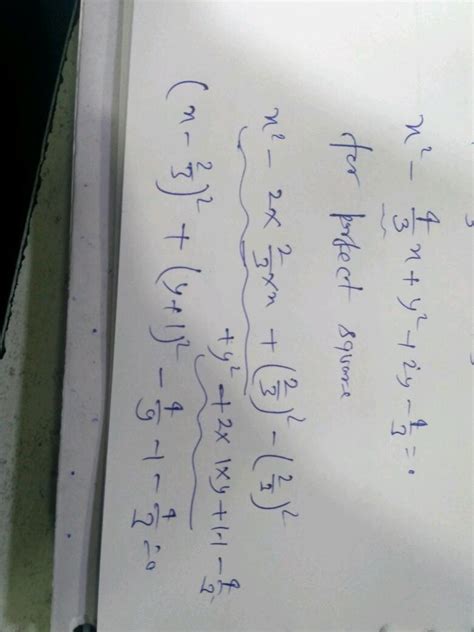 3
x² - 4/3 x + y² + 2y - 9/2 = 0
for prefect square
x² - 2 × 2/3 × x + (2/3)² - (2/3)²
+ y² + 2 × 1 × y + 1 - 1 - 9/2
(x - 2/3)² + (y + 1)² - 4/9 - 1 - 9/2 = 0